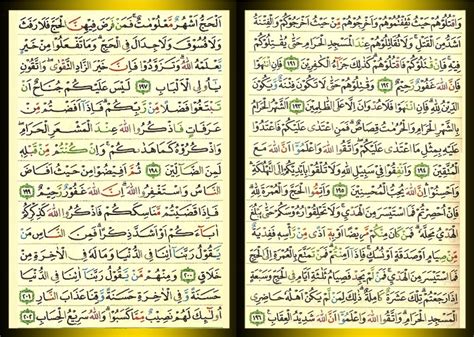 وَاقْتُلُوهُمْ حَيْثُ ثَقِفْتُمُوهُمْ وَأَخْرِجُوهُم مِّنْ حَيْثُ أَخْرَجُوكُمْ وَالْفِتْنَةُ
أَشَدُّ مِنَ الْقَتْلِ وَلَا تُقَاتِلُوهُمْ عِندَ الْمَسْجِدِ الْحَرَامِ حَتَّىٰ يُقَاتِلُوكُمْ
فِيهِ فَإِن قَاتَلُوكُمْ فَاقْتُلُوهُمْ كَذَٰلِكَ جَزَاءُ الْكَافِرِينَ ١٩١ فَإِنِ انتَهَوْا
فَإِنَّ اللَّهَ غَفُورٌ رَّحِيمٌ ١٩٢ وَقَاتِلُوهُمْ حَتَّىٰ لَا تَكُونَ فِتْنَةٌ وَيَكُونَ
الدِّينُ لِلَّهِ فَإِنِ انتَهَوْا فَلَا عُدْوَانَ إِلَّا عَلَى الظَّالِمِينَ ١٩٣ الشَّهْرُ الْحَرَامُ
بِالشَّهْرِ الْحَرَامِ وَالْحُرُمَاتُ قِصَاصٌ فَمَنِ اعْتَدَىٰ عَلَيْكُمْ فَاعْتَدُوا
عَلَيْهِ بِمِثْلِ مَا اعْتَدَىٰ عَلَيْكُمْ وَاتَّقُوا اللَّهَ وَاعْلَمُوا أَنَّ اللَّهَ مَعَ
الْمُتَّقِينَ ١٩٤ وَأَنفِقُوا فِي سَبِيلِ اللَّهِ وَلَا تُلْقُوا بِأَيْدِيكُمْ إِلَى التَّهْلُكَةِ
وَأَحْسِنُوا إِنَّ اللَّهَ يُحِبُّ الْمُحْسِنِينَ ١٩٥ وَأَتِمُّوا الْحَجَّ وَالْعُمْرَةَ لِلَّهِ
فَإِنْ أُحْصِرْتُمْ فَمَا اسْتَيْسَرَ مِنَ الْهَدْيِ وَلَا تَحْلِقُوا رُءُوسَكُمْ حَتَّىٰ يَبْلُغَ
الْهَدْيُ مَحِلَّهُ فَمَن كَانَ مِنكُم مَّرِيضًا أَوْ بِهِ أَذًى مِّن رَّأْسِهِ فَفِدْيَةٌ
مِّن صِيَامٍ أَوْ صَدَقَةٍ أَوْ نُسُكٍ فَإِذَا أَمِنتُمْ فَمَن تَمَتَّعَ بِالْعُمْرَةِ إِلَى الْحَجِّ
فَمَا اسْتَيْسَرَ مِنَ الْهَدْيِ فَمَن لَّمْ يَجِدْ فَصِيَامُ ثَلَاثَةِ أَيَّامٍ فِي الْحَجِّ وَسَبْعَةٍ
إِذَا رَجَعْتُمْ تِلْكَ عَشَرَةٌ كَامِلَةٌ ذَٰلِكَ لِمَن لَّمْ يَكُنْ أَهْلُهُ حَاضِرِي
الْمَسْجِدِ الْحَرَامِ وَاتَّقُوا اللَّهَ وَاعْلَمُوا أَنَّ اللَّهَ شَدِيدُ الْعِقَابِ ١٩٦
الْحَجُّ أَشْهُرٌ مَّعْلُومَاتٌ فَمَن فَرَضَ فِيهِنَّ الْحَجَّ فَلَا رَفَثَ
وَلَا فُسُوقَ وَلَا جِدَالَ فِي الْحَجِّ وَمَا تَفْعَلُوا مِنْ خَيْرٍ
يَعْلَمْهُ اللَّهُ وَتَزَوَّدُوا فَإِنَّ خَيْرَ الزَّادِ التَّقْوَىٰ وَاتَّقُونِ
يَا أُولِي الْأَلْبَابِ ١٩٧ لَيْسَ عَلَيْكُمْ جُنَاحٌ أَن
تَبْتَغُوا فَضْلًا مِّن رَّبِّكُمْ فَإِذَا أَفَضْتُم مِّنْ
عَرَفَاتٍ فَاذْكُرُوا اللَّهَ عِندَ الْمَشْعَرِ الْحَرَامِ
وَاذْكُرُوهُ كَمَا هَدَاكُمْ وَإِن كُنتُم مِّن قَبْلِهِ
لَمِنَ الضَّالِّينَ ١٩٨ ثُمَّ أَفِيضُوا مِنْ حَيْثُ أَفَاضَ
النَّاسُ وَاسْتَغْفِرُوا اللَّهَ إِنَّ اللَّهَ غَفُورٌ رَّحِيمٌ ١٩٩
فَإِذَا قَضَيْتُم مَّنَاسِكَكُمْ فَاذْكُرُوا اللَّهَ كَذِكْرِكُمْ
آبَاءَكُمْ أَوْ أَشَدَّ ذِكْرًا فَمِنَ النَّاسِ مَن
يَقُولُ رَبَّنَا آتِنَا فِي الدُّنْيَا وَمَا لَهُ فِي الْآخِرَةِ مِنْ
خَلَاقٍ ٢٠٠ وَمِنْهُم مَّن يَقُولُ رَبَّنَا آتِنَا فِي الدُّنْيَا
حَسَنَةً وَفِي الْآخِرَةِ حَسَنَةً وَقِنَا عَذَابَ النَّارِ ٢٠١
أُولَٰئِكَ لَهُمْ نَصِيبٌ مِّمَّا كَسَبُوا وَاللَّهُ سَرِيعُ الْحِسَابِ ٢٠٢